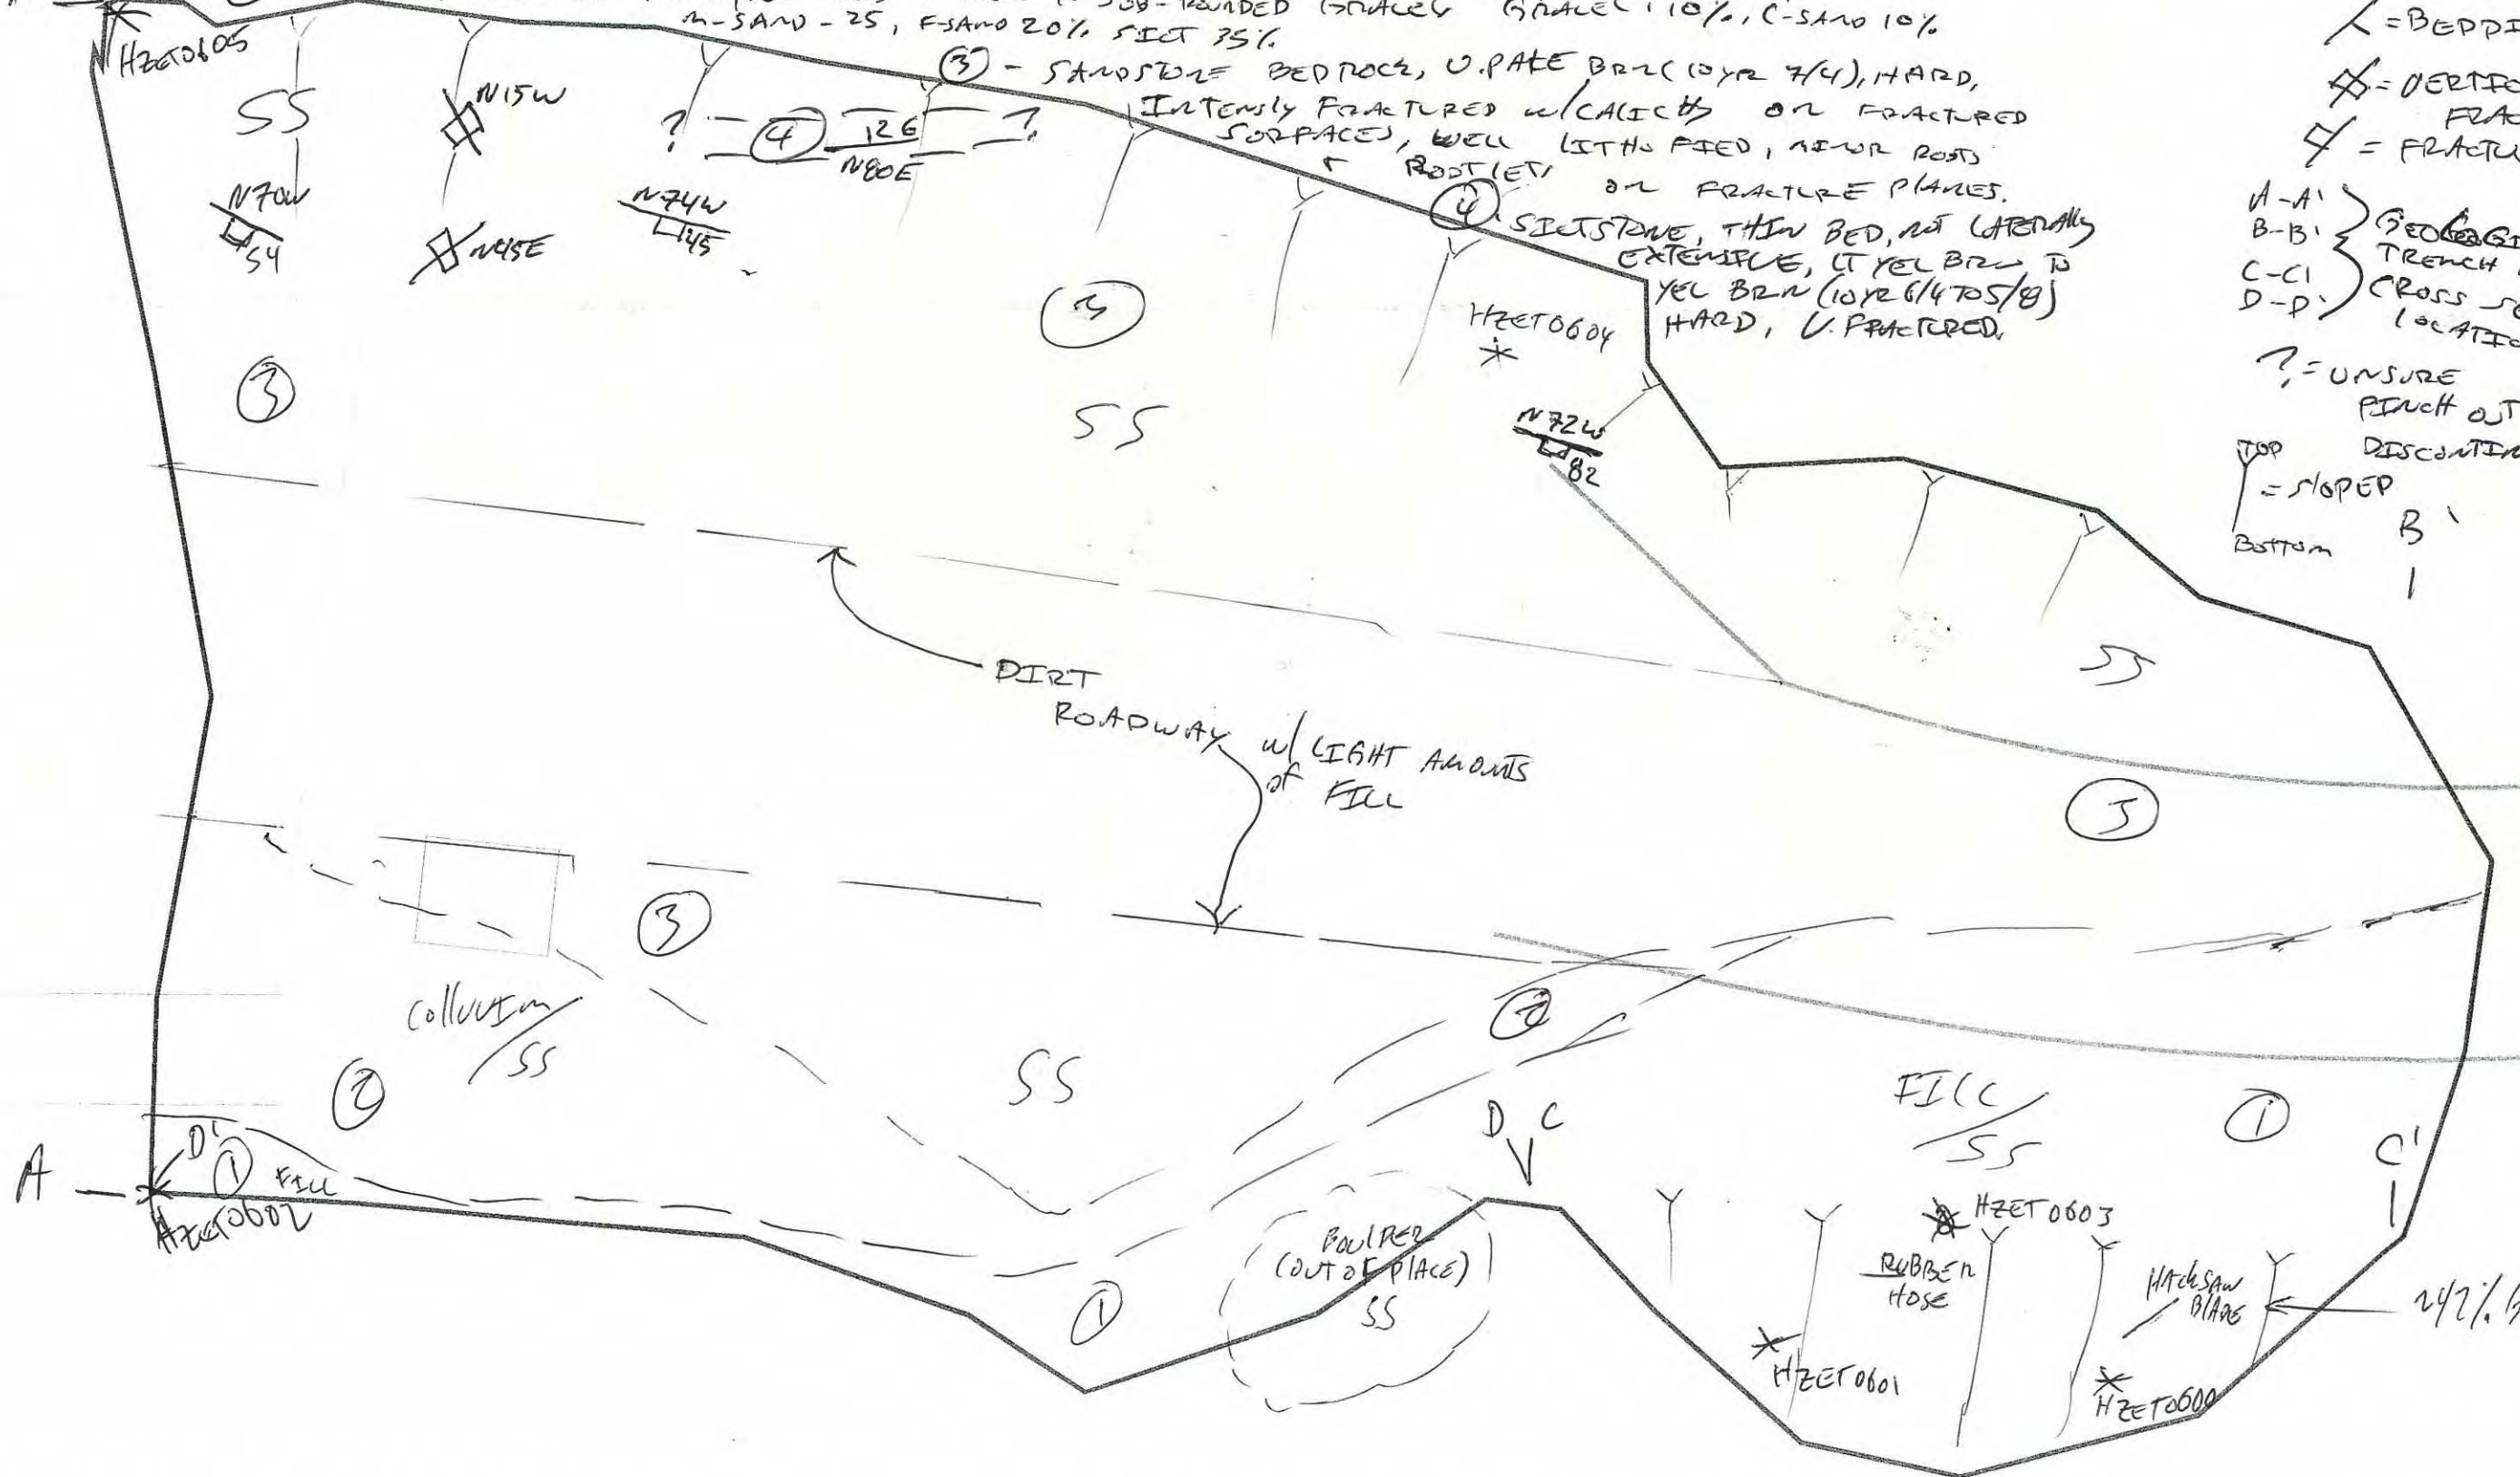 SUB-ROUNDED GRAVEL, GRAVEL 10%, C-SAND 10%
M-SAND - 25, F-SAND 20% SILT 35%
③ - SANDSTONE BEDROCK, V. PALE BRN (10YR 7/4), HARD,
INTENSLY FRACTURED w/CALICHE ON FRACTURED
SURFACES, WELL LITHOFIED, MINOR ROOTS
ROOTLETS ON FRACTURE PLANES.
④ SILTSTONE, THIN BED, NOT LATERALLY
EXTENSIVE, LT YEL BRN TO
YEL BRN (10YR 6/4 TO 5/8)
HARD, V. FRACTURED.
= BEDDI
= VERTIC
FRAC
= FRACTU
A-A'
B-B'
C-C'
D-D'
GEOLOGI
TRENCH
CROSS SE
LOCATIO
? = UNSURE
PINCH OUT
DISCONTIN
TOP
= SLOPED
BOTTOM
B'
HZET0605
SS
N15W
N70W
54
N45E
N74W
45
? ④ 126 ?
N80E
③
③
SS
HZET0604
*
N72W
82
SS
DIRT
ROADWAY w/ LIGHT AMOUNTS
OF FILL
3
③
COLLUVIUM
/SS
②
SS
②
D C
FILL
/SS
①
C'
A
D'
① FILL
HZET0602
①
BOULDER
(OUT OF PLACE)
SS
HZET0603
RUBBER
HOSE
HACKSAW
BLADE
HZET0601
HZET0600